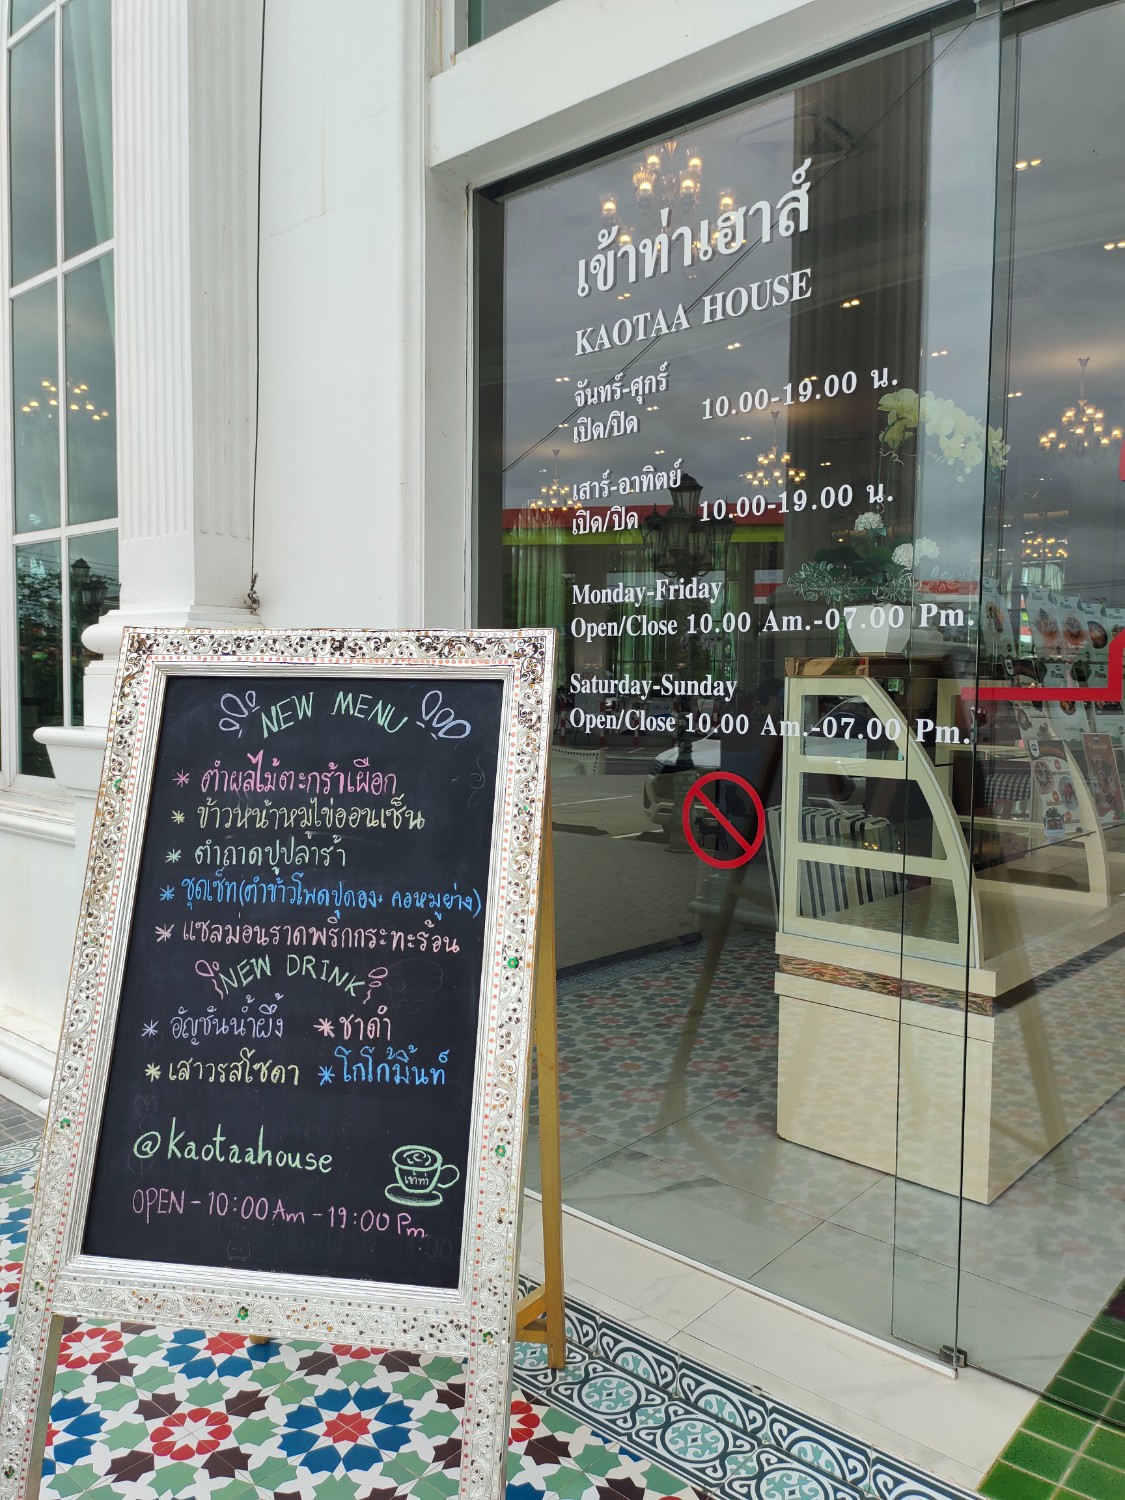 เข้าท่าเฮาส์
KAOTAA HOUSE
จันทร์-ศุกร์
เปิด/ปิด 10.00-19.00 น.
เสาร์-อาทิตย์
เปิด/ปิด 10.00-19.00 น.
Monday-Friday
Open/Close 10.00 Am.-07.00 Pm.
Saturday-Sunday
Open/Close 10.00 Am.-07.00 Pm.
NEW MENU
* ตำผลไม้ตะกร้าเผือก
* ข้าวหน้าหมูไข่ออนเซ็น
* ตำถาดปูปลาร้า
* ชุดเซ็ท(ตำข้าวโพดปูดอง+ คอหมูย่าง)
* แซลม่อนราดพริกกระทะร้อน
NEW DRINK
* อัญชันน้ำผึ้ง * ชาดำ
* เสาวรสโซดา * โกโก้มิ้นท์
@kaotaahouse
เข้าท่า
OPEN - 10:00 Am - 19:00 Pm.